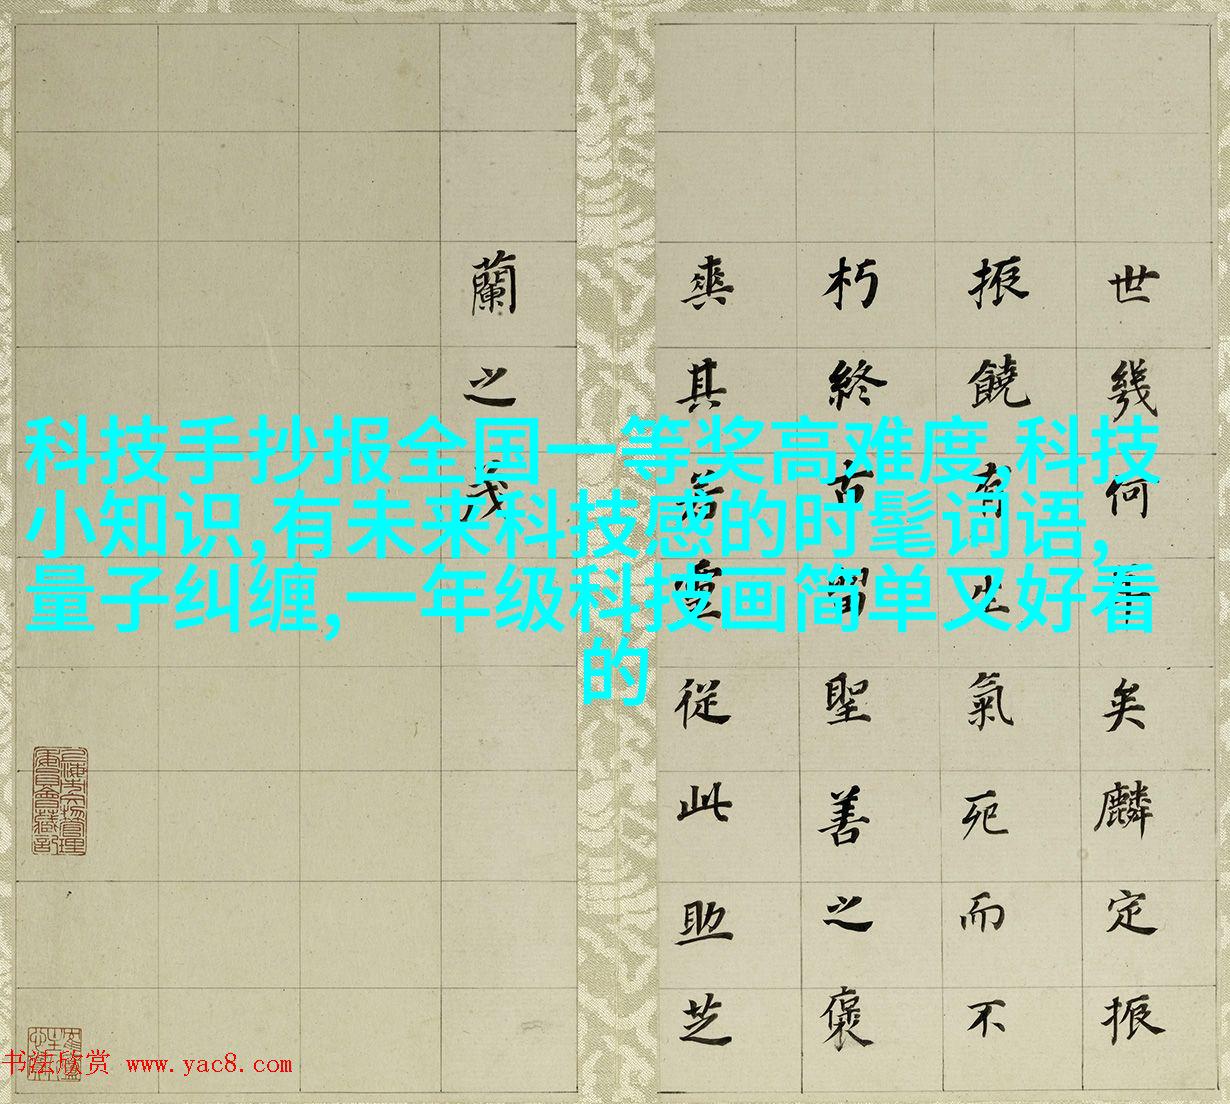 科技手抄报全国一等奖高难度,科技
小知识,有未来科技感的时髦词语,
量子纠缠,一年级科技画简单又好看
的
世幾何矣麟定振
振饒有生氣死而不
朽終古聞聖善之褒
爽其若從此助芝
蘭之茂
书法欣赏 www.yac8.com